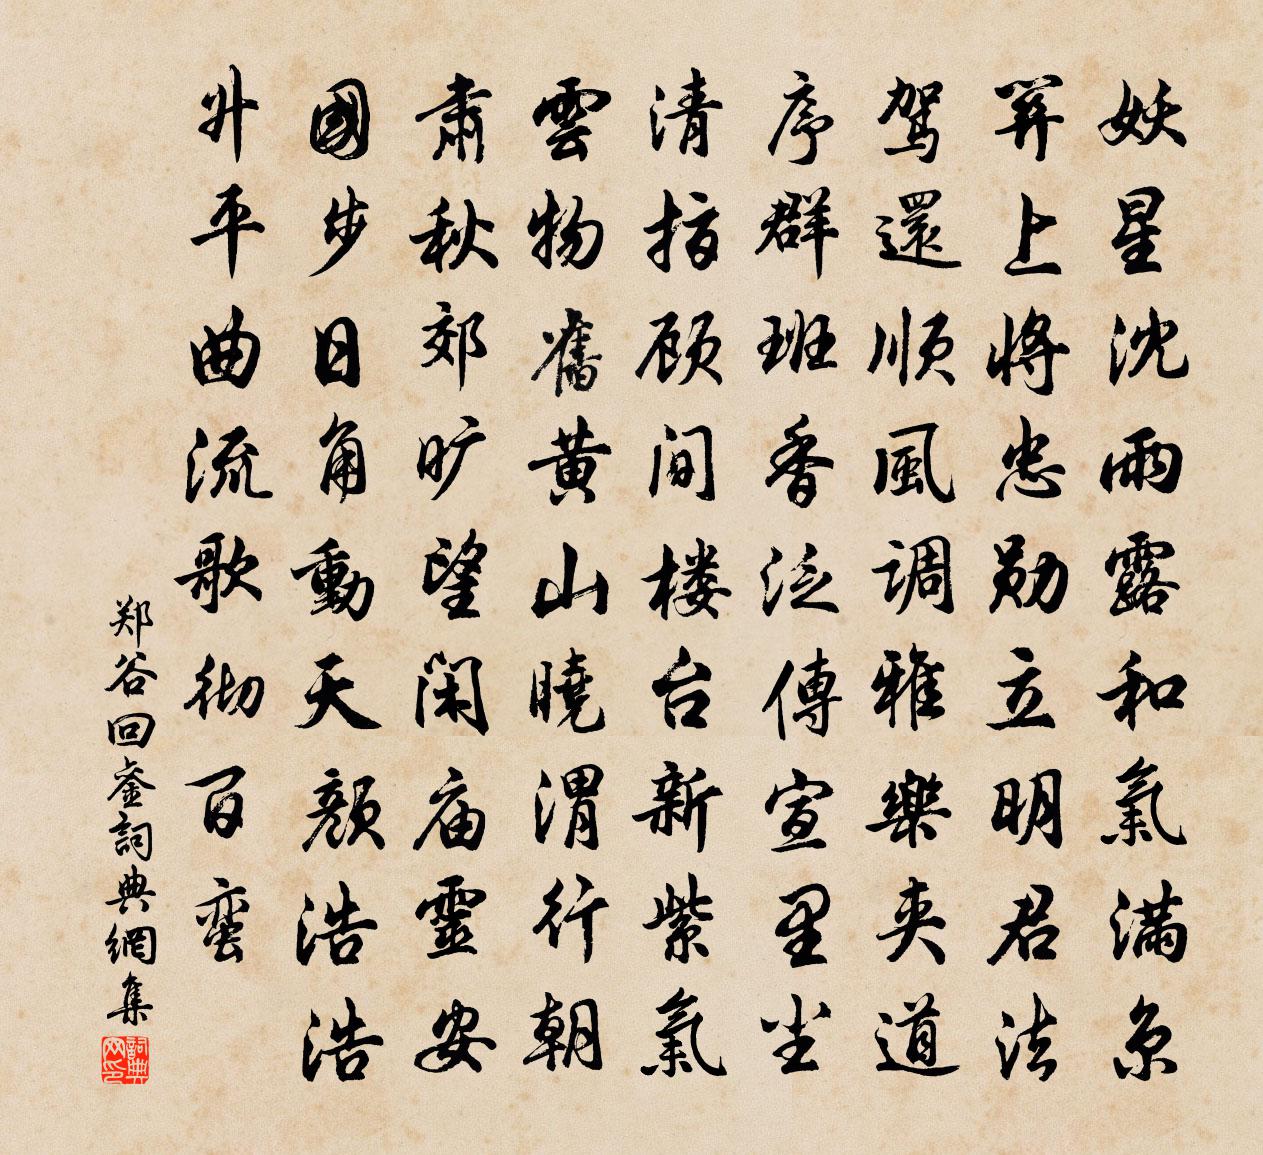 妖星沈雨露和氣滿京
关上将忠勋立明君法
驾還顺風调雅樂夹道
序群班香泛傳宣里尘
清指顾间楼台新紫氣
雲物舊黄山曉渭行朝
肃秋郊旷望闲庙靈安
國步日角動天颜浩浩
升平曲流歌彻百蛮
郑谷回銮詞典網集
詞典网印